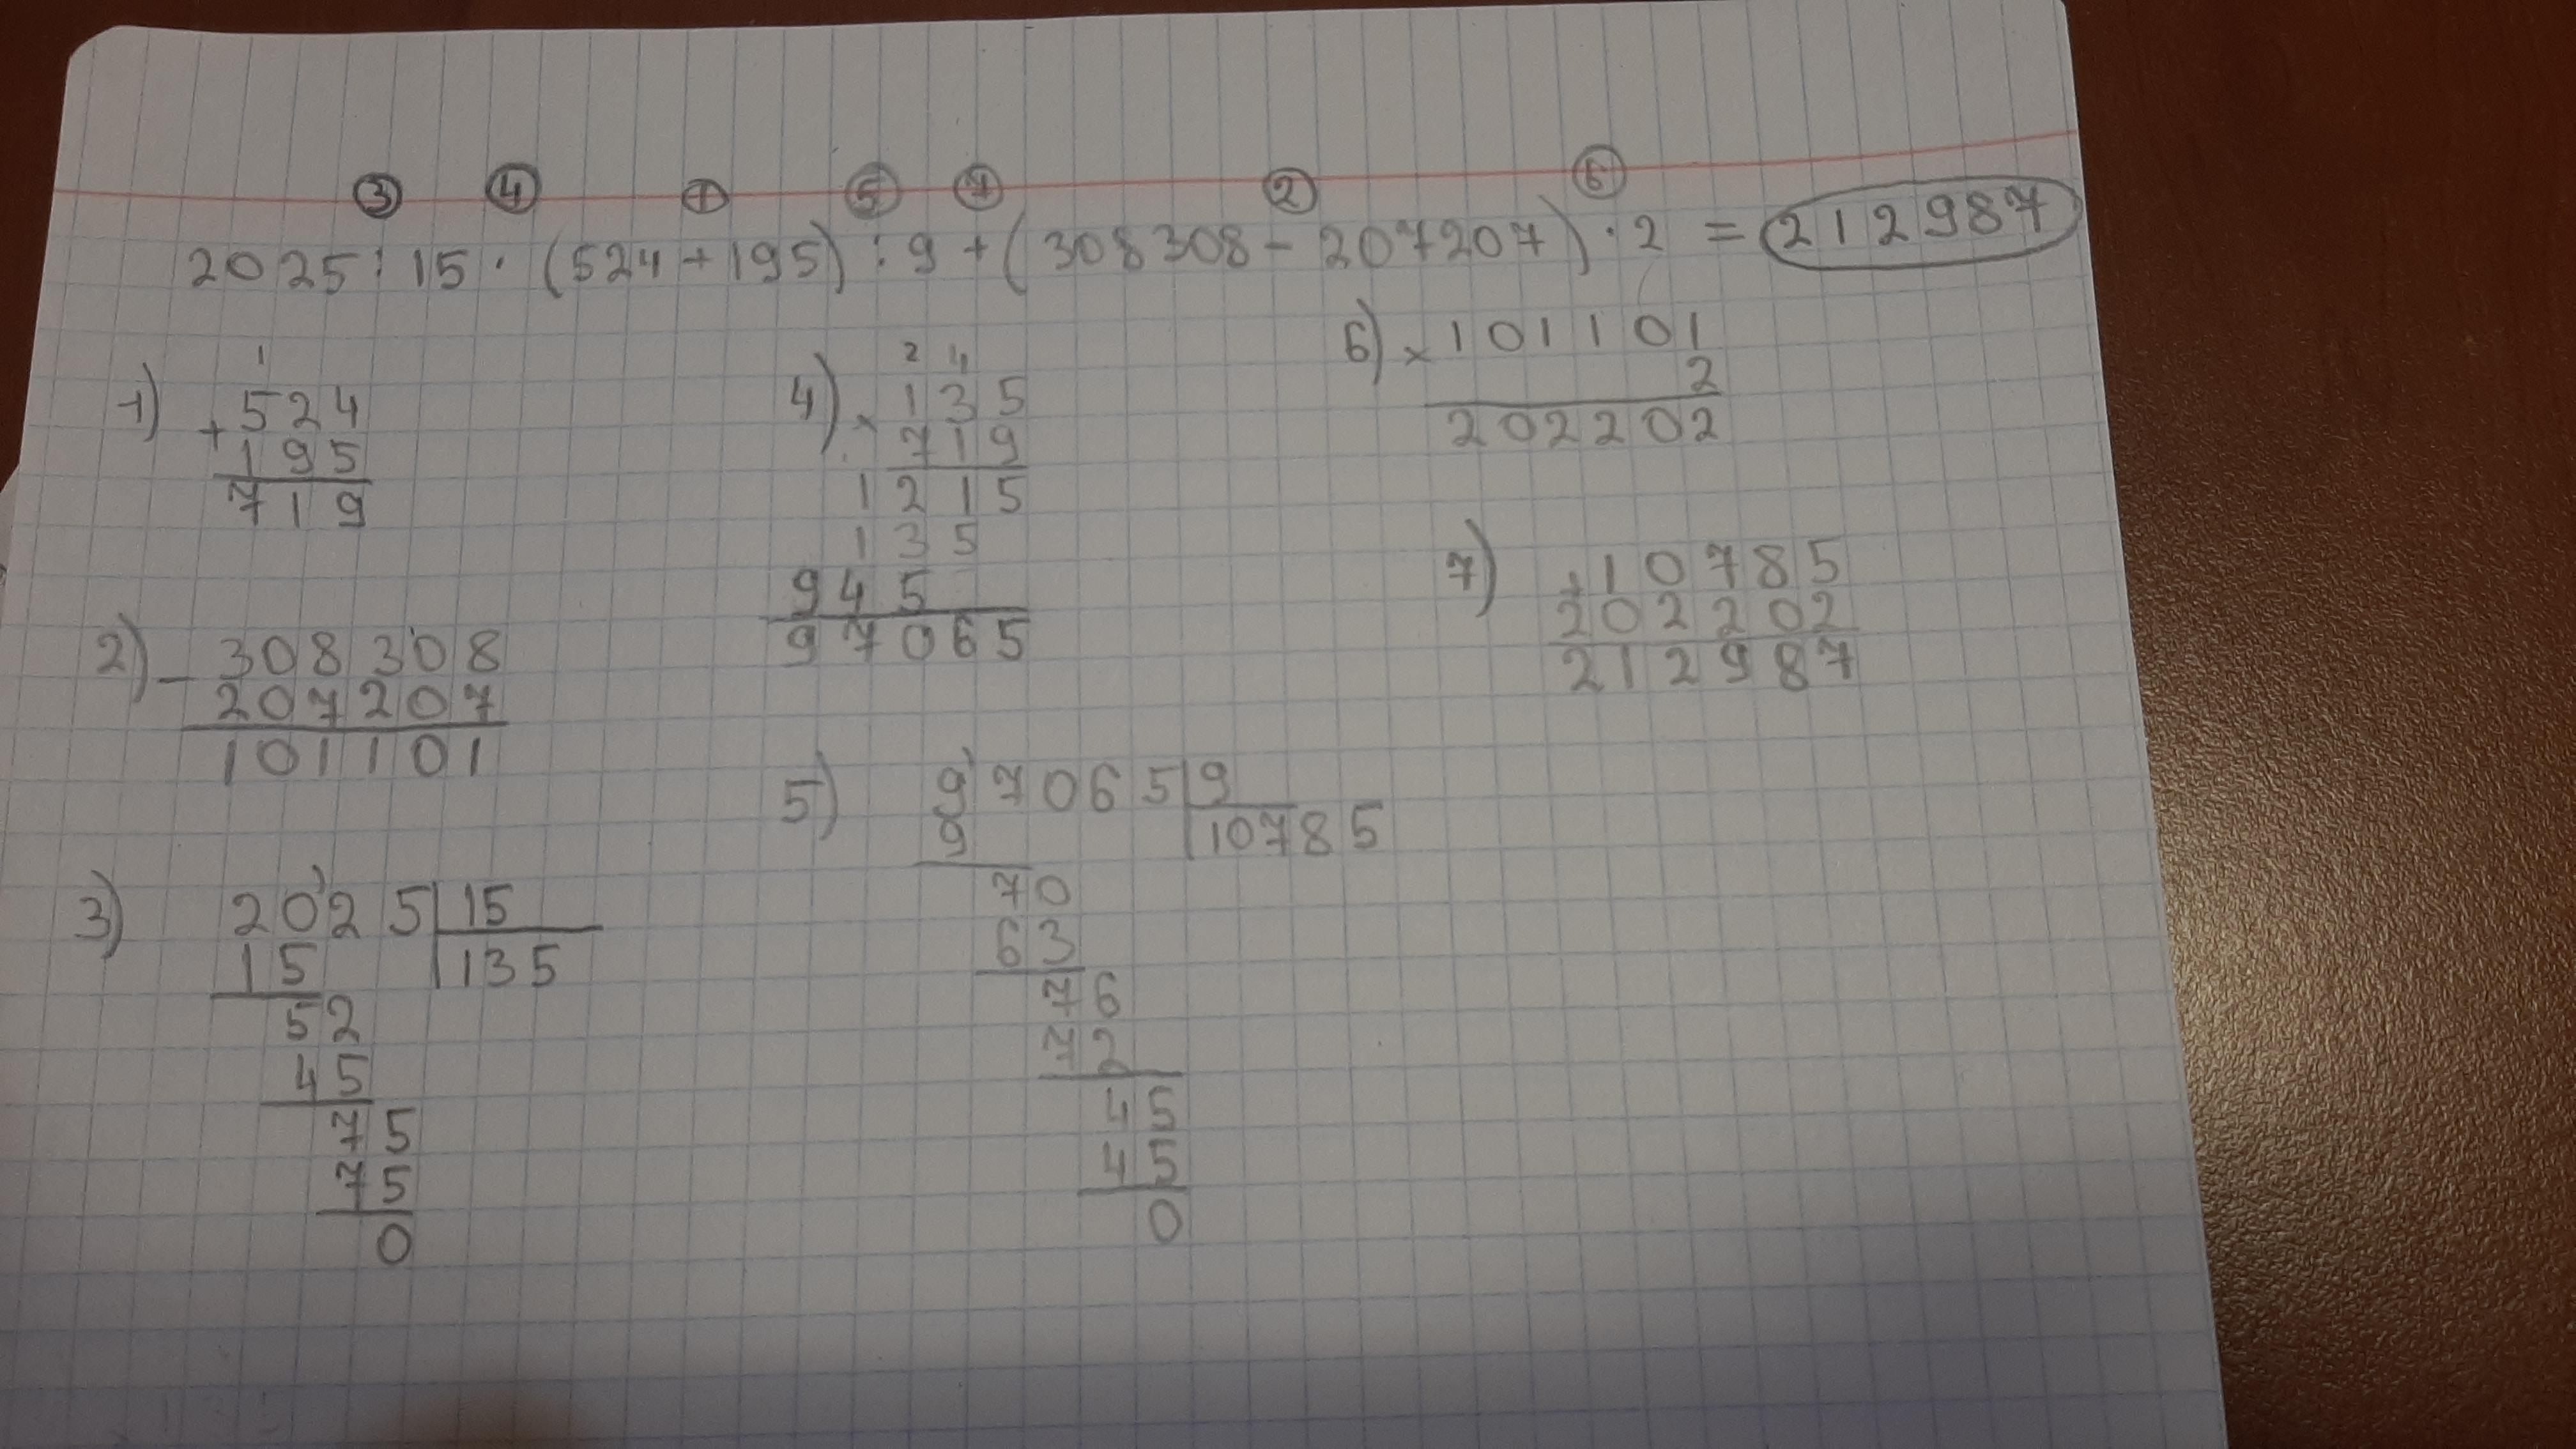 ③ ④ ① ⑤ ⑦ ② ⑥
2025:15·(524+195):9+(308308-207207)·2=212987
1)
1
+524
195
719
2)
-308308
207207
101101
3)
2025|15
15 |135
52
45
75
75
0
4)
2 4
×135
719
1215
135
945
97065
5)
97065|9
9 |10785
70
63
76
72
45
45
0
6)
×101101
2
202202
7)
+10785
202202
212987